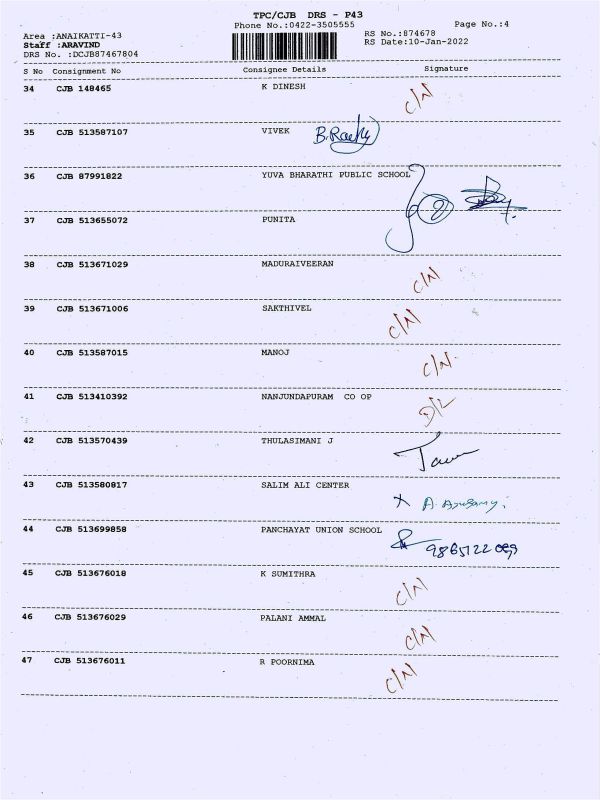 TPC/CJB DRS - P43
Phone No.:0422-3505555
Page No.:4
Area :ANAIKATTI-43
RS No.:874678
Staff :ARAVIND
RS Date:10-Jan-2022
DRS No. :DCJB87467804
S No Consignment No Consignee Details Signature
34 CJB 148465 K DINESH C/N
35 CJB 513587107 VIVEK
36 CJB 87991822 YUVA BHARATHI PUBLIC SCHOOL
37 CJB 513655072 PUNITA
38 CJB 513671029 MADURAIVEERAN C/N
39 CJB 513671006 SAKTHIVEL C/N
40 CJB 513587015 MANOJ C/N
41 CJB 513410392 NANJUNDAPURAM CO OP D/L
42 CJB 513570439 THULASIMANI J
43 CJB 513580817 SALIM ALI CENTER
44 CJB 513699858 PANCHAYAT UNION SCHOOL
45 CJB 513676018 K SUMITHRA C/N
46 CJB 513676029 PALANI AMMAL C/N
47 CJB 513676011 R POORNIMA C/N